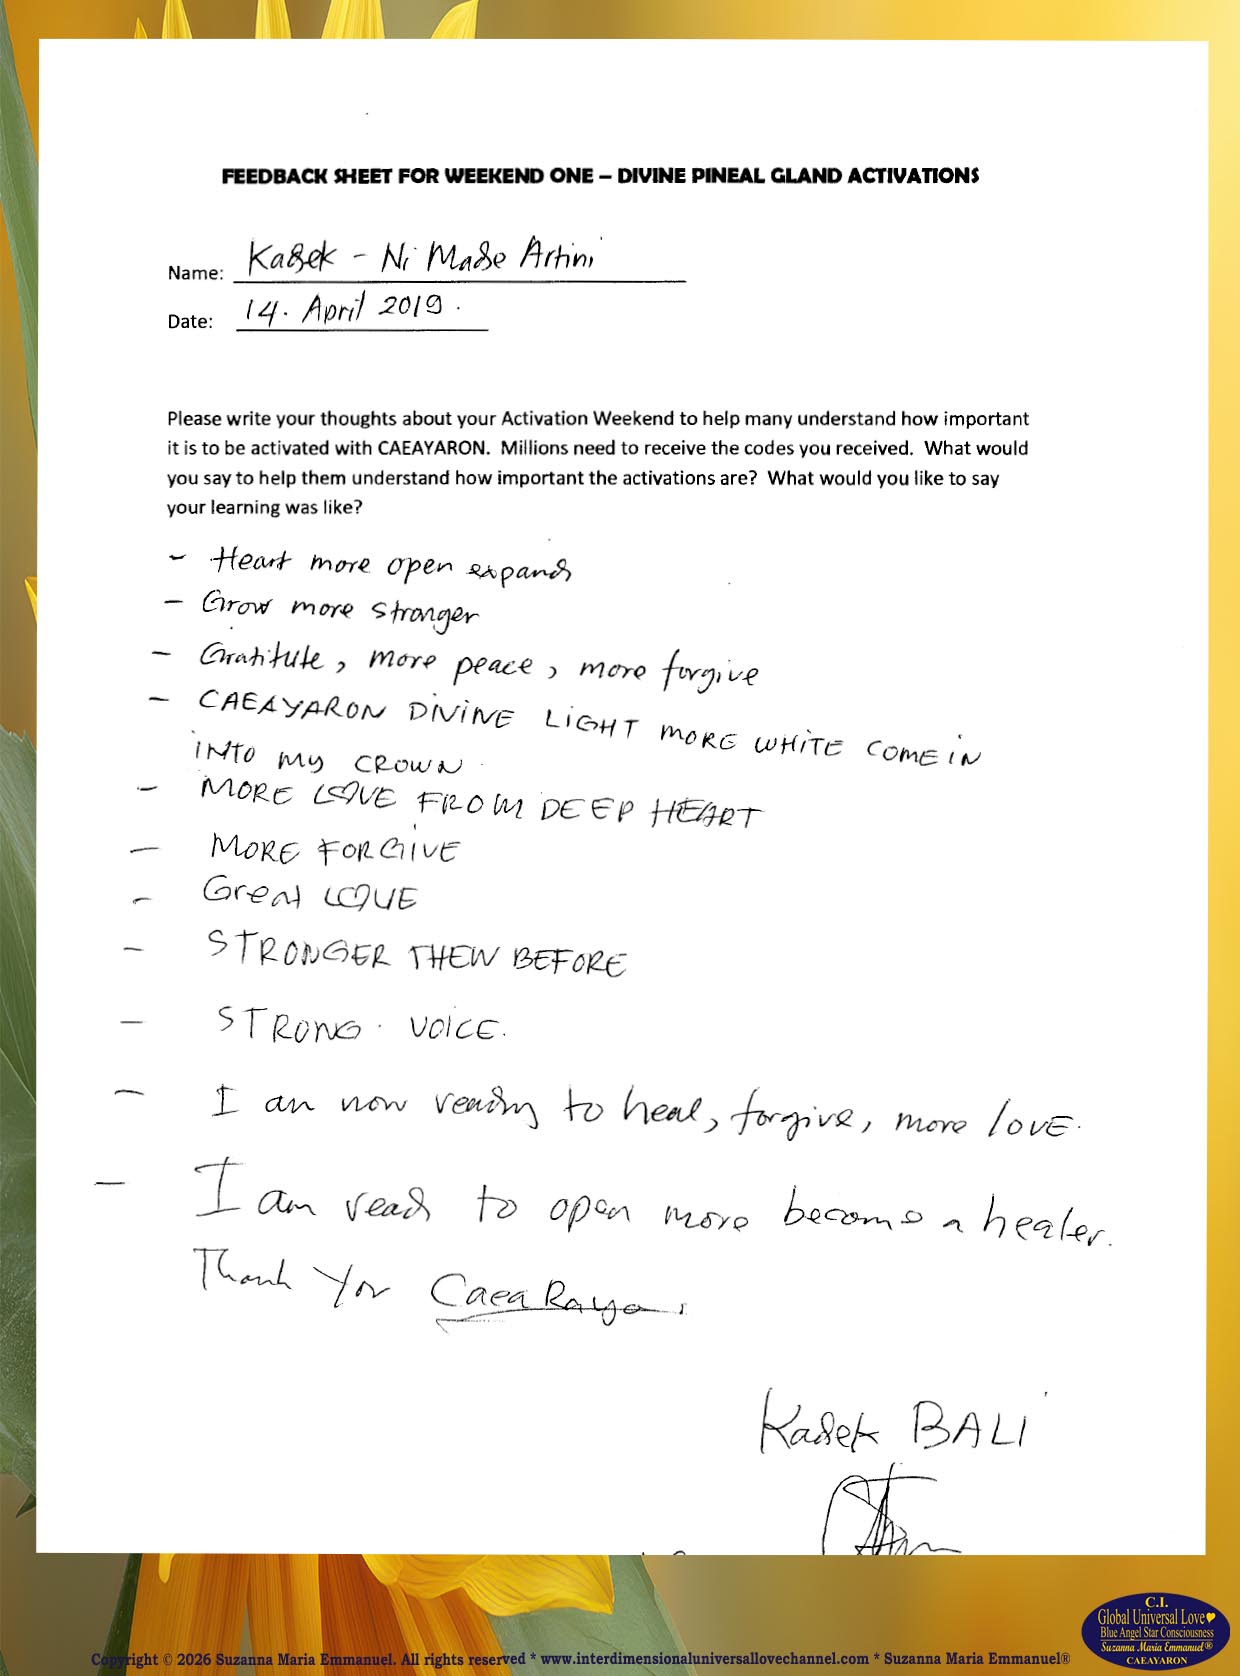 FEEDBACK SHEET FOR WEEKEND ONE – DIVINE PINEAL GLAND ACTIVATIONS
Name: Kadek - Ni Made Artini
Date: 14. April 2019.
Please write your thoughts about your Activation Weekend to help many understand how important
it is to be activated with CAEAYARON. Millions need to receive the codes you received. What would
you say to help them understand how important the activations are? What would you like to say
your learning was like?
- Heart more open expands
- Grow more stronger
- Gratitute, more peace, more forgive
- CAEAYARON DIVINE LIGHT MORE WHITE COME IN
INTO MY CROWN
- MORE LOVE FROM DEEP HEART
- MORE FORGIVE
- Great LOVE
- STRONGER THEW BEFORE
- STRONG. VOICE.
- I am now ready to heal, forgive, more love.
- I am ready to open more become a healer.
Thank You CaeaRaya.
Kadek BALI
C.I.
Global Universal Love
Blue Angel Star Consciousness
Suzanna Maria Emmanuel®
CAEAYARON
Copyright © 2026 Suzanna Maria Emmanuel. All rights reserved * www.interdimensionaluniversallovechannel.com * Suzanna Maria Emmanuel®